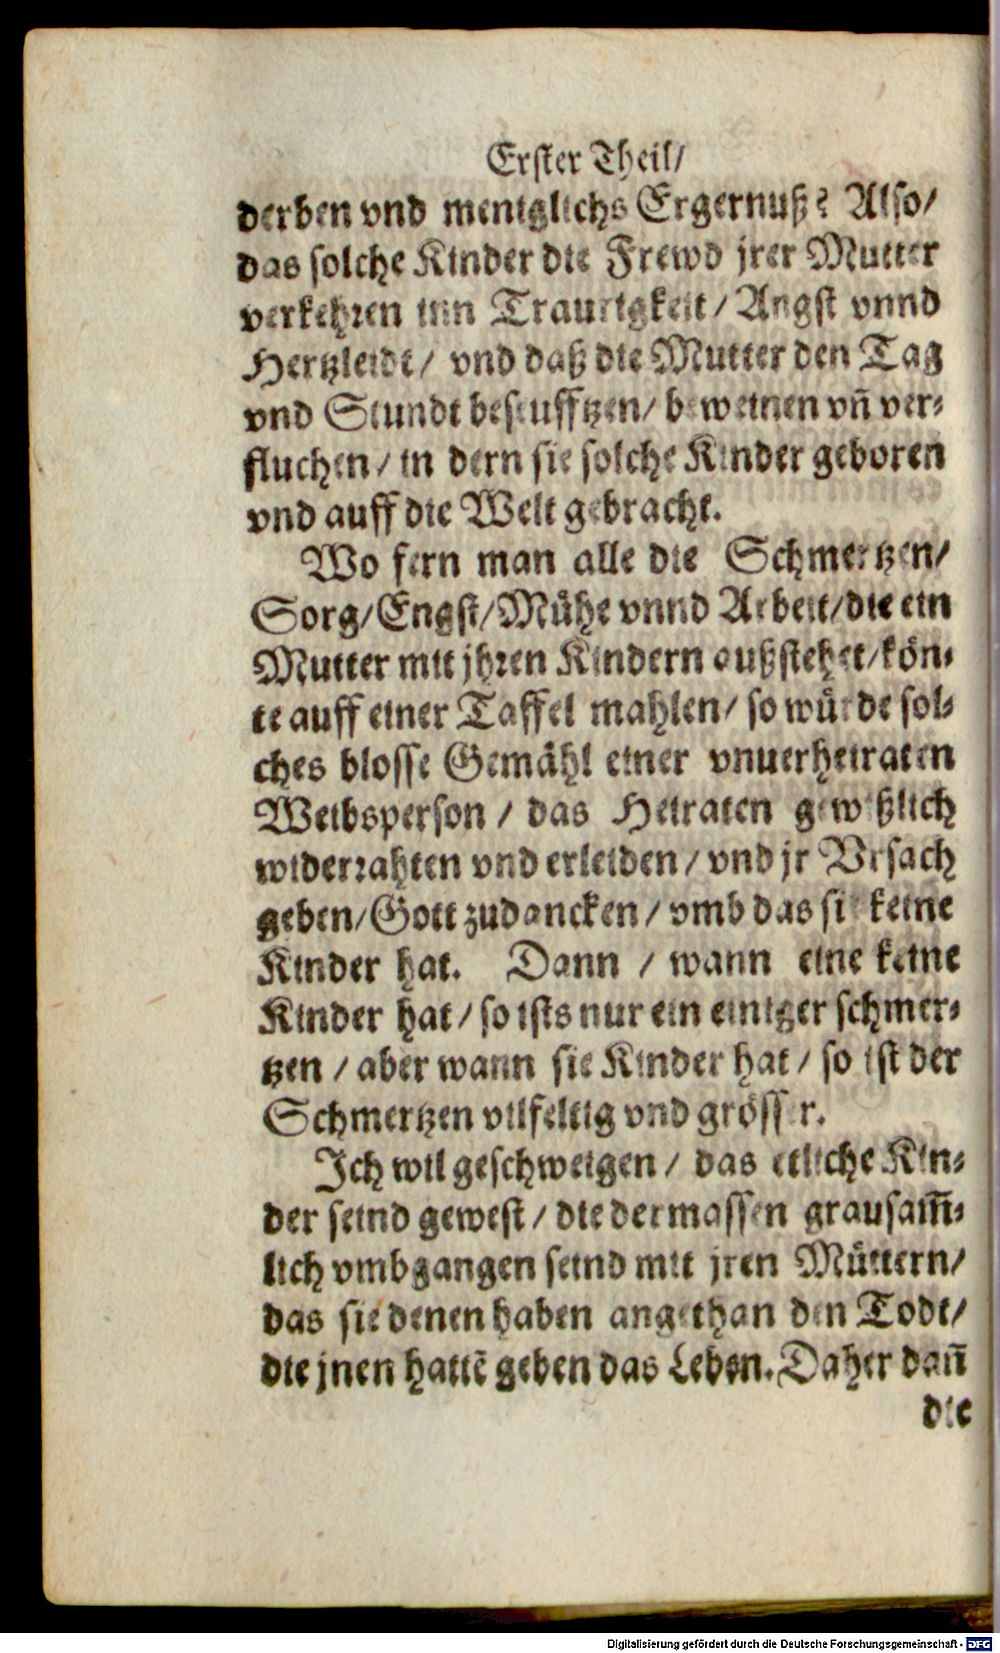 Erster Theil/
derben vnd meniglichs Ergernuß? Also/
das solche Kinder die Frewd jrer Mutter
verkehren inn Traurigkeit/ Angst vnnd
Hertzleidt/ vnd daß die Mutter den Tag
vnd Stundt beseufftzen/ beweinen vn̄ ver-
fluchen/ in dern sie solche Kinder geboren
vnd auff die Welt gebracht.
Wo fern man alle die Schmertzen/
Sorg/Engst/Mühe vnnd Arbeit/die ein
Mutter mit jhren Kindern außstehet/kön-
te auff einer Taffel mahlen/ so würde sol-
ches blosse Gemähl einer vnuerheiraten
Weibsperson / das Heiraten gewißlich
widerrahten vnd erleiden/ vnd jr Vrsach
geben/Gott zudancken/ vmb das sie keine
Kinder hat. Dann / wann eine keine
Kinder hat/ so ists nur ein einiger schmer-
tzen / aber wann sie Kinder hat/ so ist der
Schmertzen vilfeltig vnd grösser.
Ich wil geschweigen/ das etliche Kin-
der seind gewest/ die dermassen grausam̄-
lich vmbgangen seind mit jren Müttern/
das sie denen haben angethan den Todt/
die jnen hattē geben das Leben. Daher dan̄
die
Digitalisierung gefördert durch die Deutsche Forschungsgemeinschaft - DFG